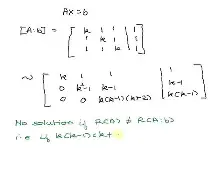 Ax=b
[A:b] = [ k 1 1 | 1
1 k 1 | 1
1 1 k | 1 ]
~ [ k 1 1 | 1
0 k²-1 k-1 | k-1
0 0 k(k-1)(k+2) | k(k-1) ]
No solution if R(A) ≠ R(A:b)
i.e if k(k-1)(k+